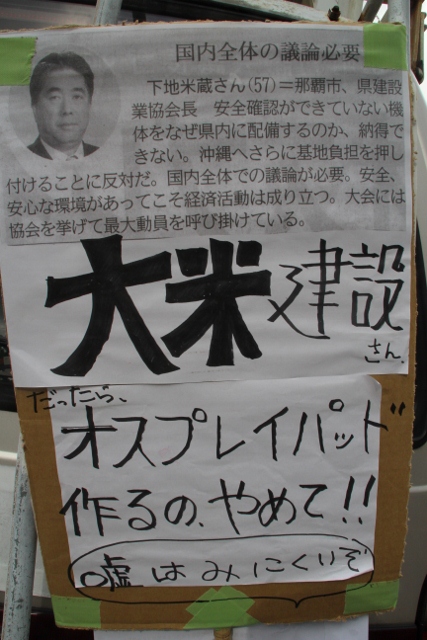 国内全体の議論必要
下地米蔵さん(57)＝那覇市、県建設
業協会長　安全確認ができていない機
体をなぜ県内に配備するのか、納得で
きない。沖縄へさらに基地負担を押し
付けることに反対だ。国内全体での議論が必要。安全、
安心な環境があってこそ経済活動は成り立つ。大会には
協会を挙げて最大動員を呼び掛けている。
大米建設
さん、
だったら、
オスプレイパッド
作るの、やめて!!
嘘はみにくいぞ